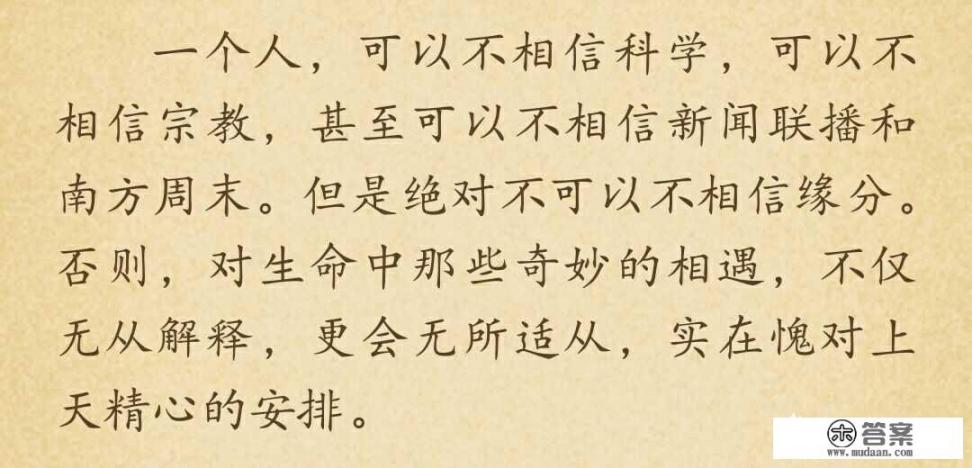 一个人，可以不相信科学，可以不
相信宗教，甚至可以不相信新闻联播和
南方周末。但是绝对不可以不相信缘分。
否则，对生命中那些奇妙的相遇，不仅
无从解释，更会无所适从，实在愧对上
天精心的安排。
木答案
www.mudaan.com